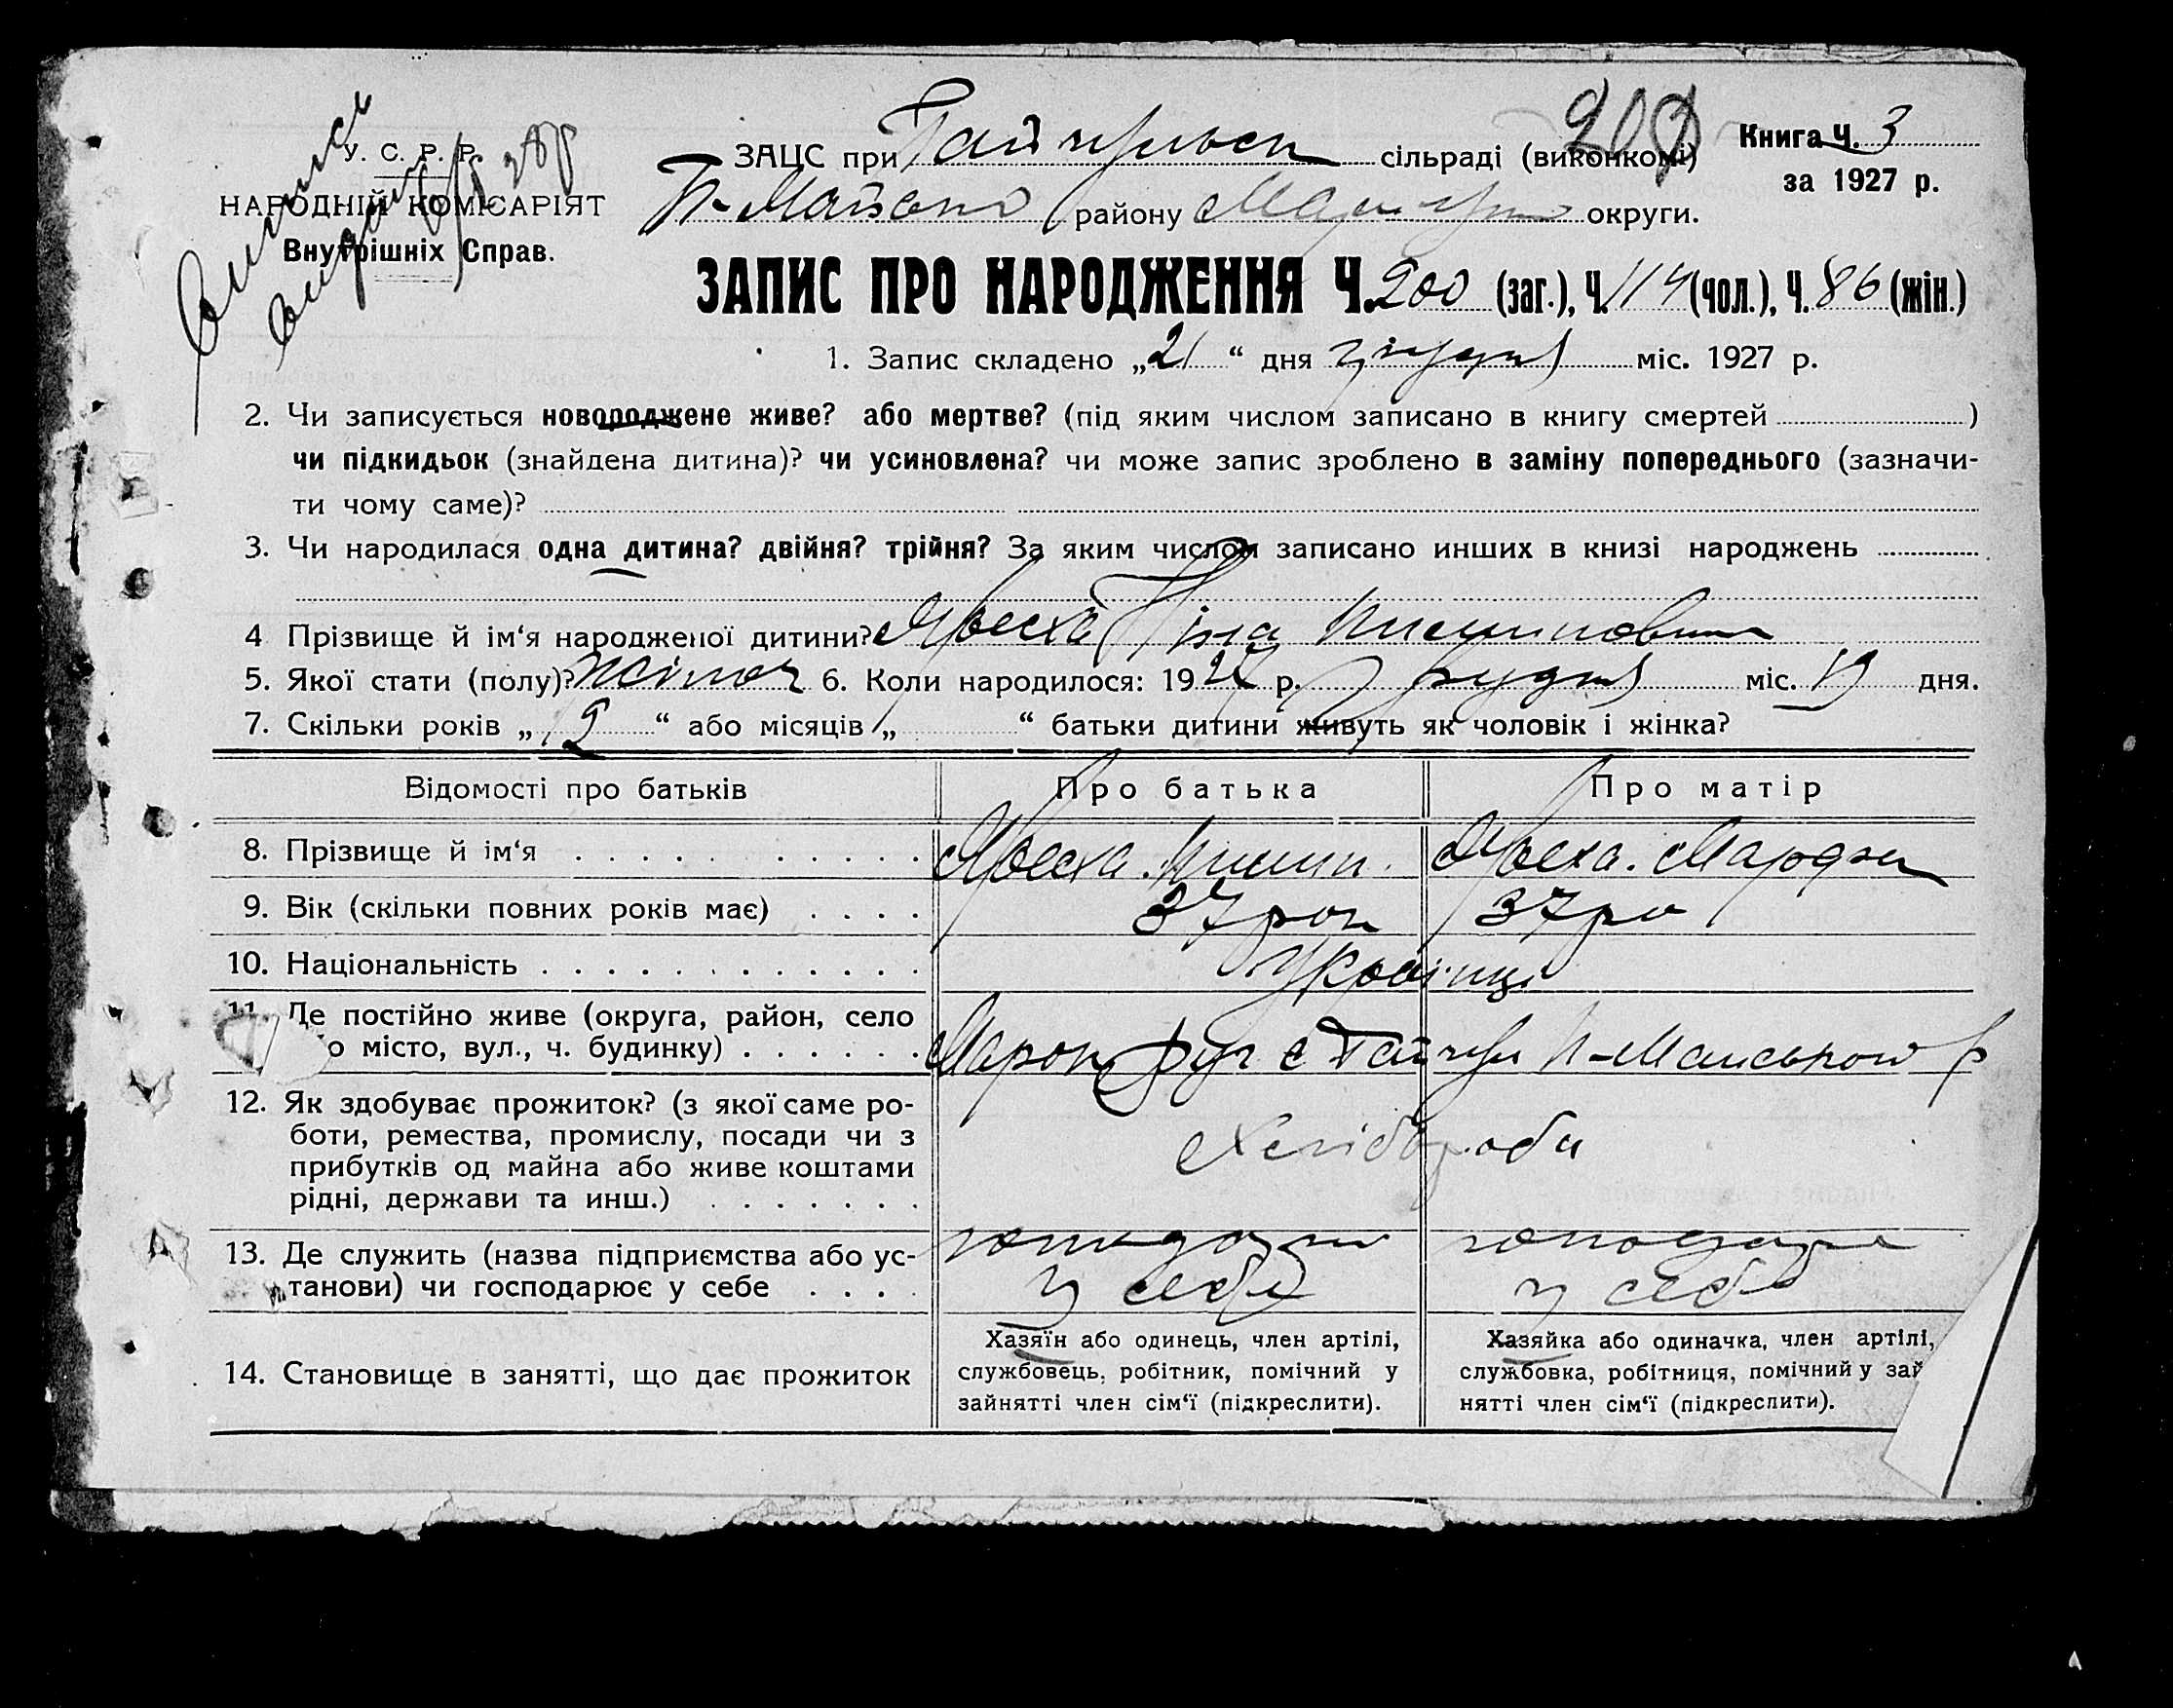 Випись
видана
У. С. Р. Р.
НАРОДНІЙ КОМІСАРІЯТ
Внутрішніх Справ.
200
ЗАЦС при Гайчульск сільраді (виконкомі)
Книга Ч. 3
за 1927 р.
району округи.
ЗАПИС ПРО НАРОДЖЕННЯ Ч. 200 (заг.), Ч. 114 (чол.), Ч. 86 (жін.)
1. Запис складено „21“ дня грудня міс. 1927 р.
2. Чи записується новороджене живе? або мертве? (під яким числом записано в книгу смертей )
чи підкидьок (знайдена дитина)? чи усиновлена? чи може запис зроблено в заміну попереднього (зазначи-
ти чому саме)?
3. Чи народилася одна дитина? двійня? трійня? За яким числом записано инших в книзі народжень
4 Прізвище й ім‘я народженої дитини? Ніна
5. Якої стати (полу)? жіноч 6. Коли народилося: 1927 р. грудня міс. 19 дня.
7. Скільки років „12“ або місяців „ “ батьки дитини живуть як чоловік і жінка?
Відомості про батьків Про батька Про матір
8. Прізвище й ім‘я
9. Вік (скільки повних років має) 37 рок 37 ро
10. Національність Україці
11. Де постійно живе (округа, район, село
о місто, вул., ч. будинку) с Гайчул
12. Як здобуває прожиток? (з якої саме ро-
боти, ремества, промислу, посади чи з
прибутків од майна або живе коштами
рідні, держави та инш.)
Хлібороби
13. Де служить (назва підприємства або ус-
танови) чи господарює у себе
у себе у себе
14. Становище в занятті, що дає прожиток
Хазяїн або одинець, член артілі,
службовець, робітник, помічний у
зайнятті член сім‘ї (підкреслити).
Хазяйка або одиначка, член артілі,
службовка, робітниця, помічний у зай
нятті член сім‘ї (підкреслити).